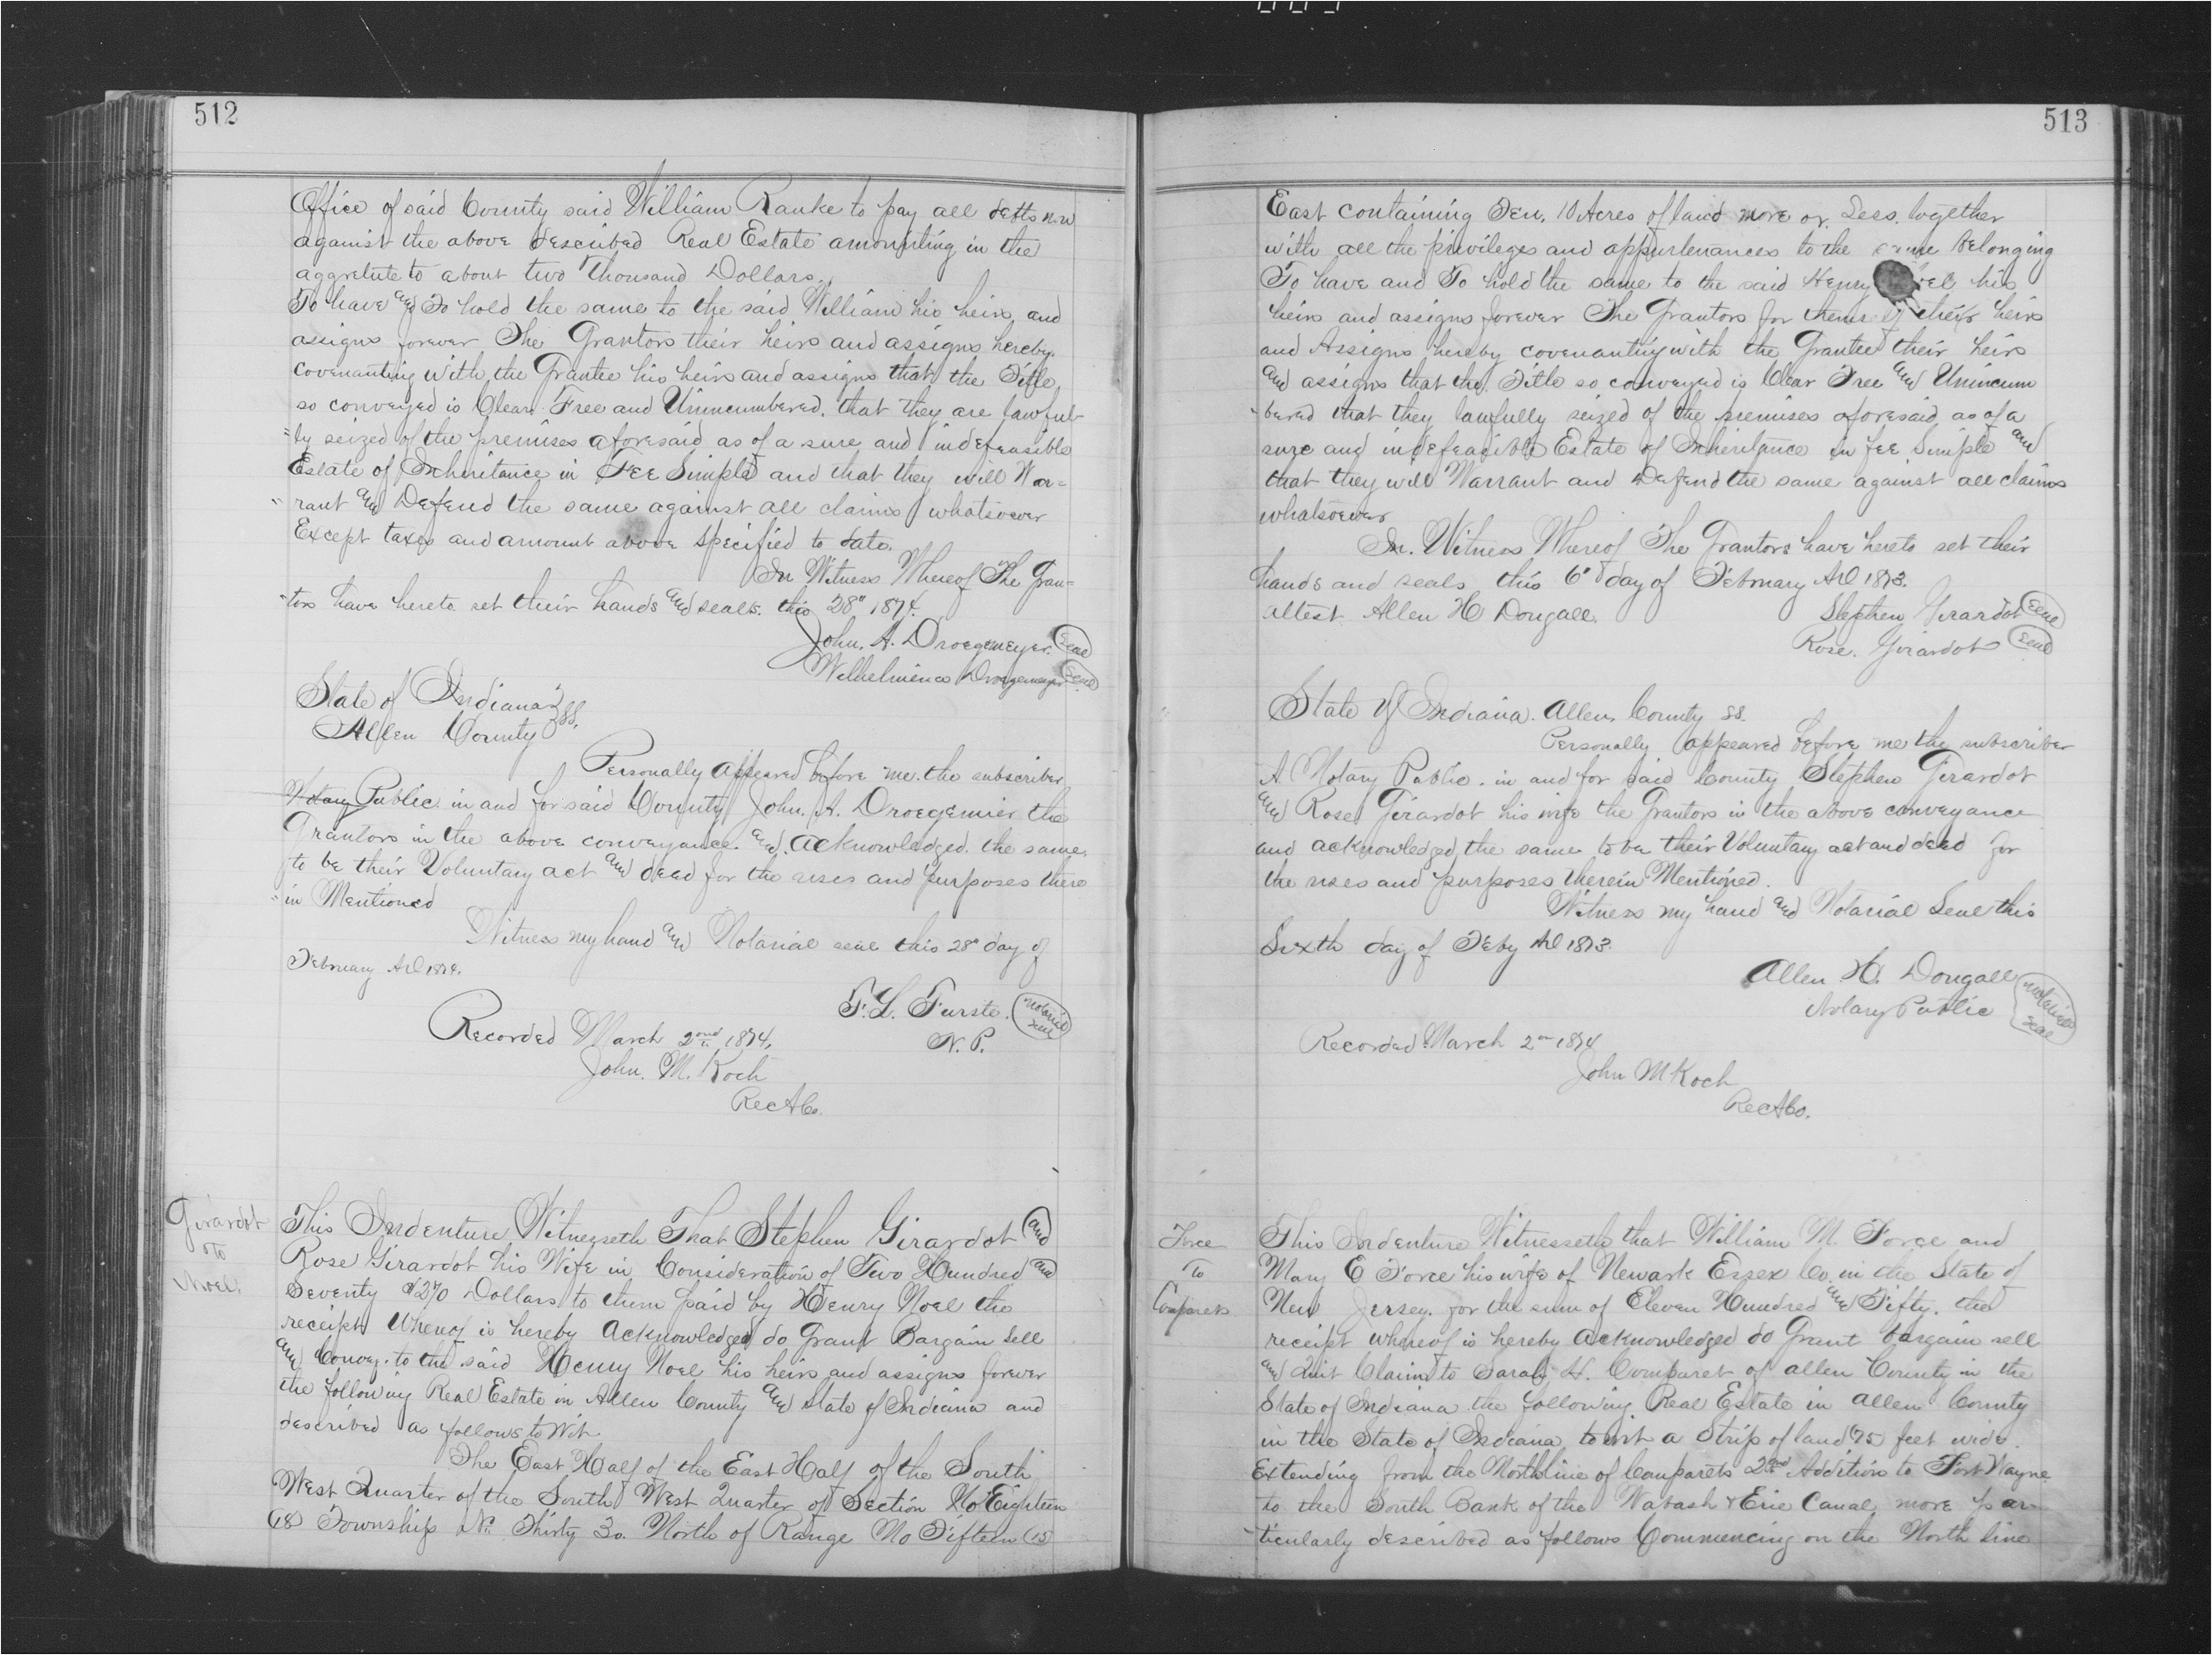 512
Office of said County said William Ranke to pay all debts now
against the above described Real Estate amounting in the
aggretute to about two Thousand Dollars.
To have and To hold the same to the said William his heirs and
assigns forever The Grantors their heirs and assigns hereby
covenanting with the Grantee his heirs and assigns that the Title
so conveyed is Clear Free and Unincumbered. that they are lawful-
"ly seized of the premises aforesaid as of a sure and indefeasible
Estate of Inheritance in Fee Simple and that they will War=
"rant and Defend the same against all claims whatsoever
Except taxes and amount above specified to date.
In Witness Whereof The Gran=
"tors have hereto set their hands and seals. this 28" 1874.
John. A. Droegemeyer. Seal
Wilhelmina Droegemeyer Seal
State of Indiana } ss.
Allen County
Personally appeared before me the subscriber
Notary Public in and for said County John. A. Droegemier the
Grantors in the above conveyance. and. acknowledged. the same.
to be their Voluntary act and deed for the uses and purposes there
"in Mentioned
Witness my hand and Notarial seal this 28" day of
February AD 1874.
F. L. Furste. Notarial Seal
N. P.
Recorded March 2nd 1874.
John. M. Koch
Rec A Co.
Girardot
To
Noel.
This Indenture Witnesseth That Stephen Girardot and
Rose Girardot his Wife in Consideration of Two Hundred and
Seventy $270 Dollars to them paid by Henry Noel the
receipt Whereof is hereby Acknowledged do Grant Bargain Sell
and Convey. to the said Henry Noel his heirs and assigns forever
the following Real Estate in Allen County and State of Indiana and
described as follows to Wit.
The East Half of the East Half of the South
West Quarter of the South West Quarter of Section No Eighteen
(18) Township No. Thirty 30. North of Range No Fifteen (15)
513
East containing Ten. 10 Acres of land more or Less. together
with all the privileges and appurtenances to the same belonging
To have and To hold the same to the said Henry his
heirs and assigns forever The Grantors for their heirs
and Assigns hereby covenanting with the Grantee their heirs
and assigns that the Title so conveyed is Clear Free and Unincum
"bered that they lawfully seized of the premises aforesaid as of a
sure and indefeasible Estate of Inheritance in fee Simple and
that they will Warrant and Defend the same against all claims
whatsoever
In. Witness Whereof The Grantors have hereto set their
hands and seals this 6" day of February AD 1873.
attest. Allen H Dougall. Stephen Girardot Seal
Rose. Girardot Seal
State of Indiana. Allen County ss.
Personally appeared before me the subscriber
A Notary Public. in and for said County Stephen Girardot
and Rose Girardot his wife the Grantors in the above conveyance
and acknowledged the same to be their Voluntary act and deed for
the uses and purposes therein Mentioned.
Witness my hand and Notarial Seal this
Sixth day of Feby AD 1873.
Allen H. Dougall
Notary Public Notarial Seal
Recorded March 2nd 1874
John M Koch
Rec A Co.
Force
To
Comparets
This Indenture Witnesseth that William M. Force and
Mary E Force his wife of Newark Essex Co. in the State of
New Jersey. for the sum of Eleven Hundred and Fifty. the
receipt whereof is hereby acknowledged do Grant bargain sell
and Quit Claim to Sarah H. Comparet of Allen County in the
State of Indiana the following Real Estate in Allen County
in the State of Indiana to wit a Strip of land 75 feet wide.
Extending from the North line of Comparets 2nd Addition to Fort Wayne
to the South Bank of the Wabash & Erie Canal more par
"ticularly described as follows Commencing on the North line